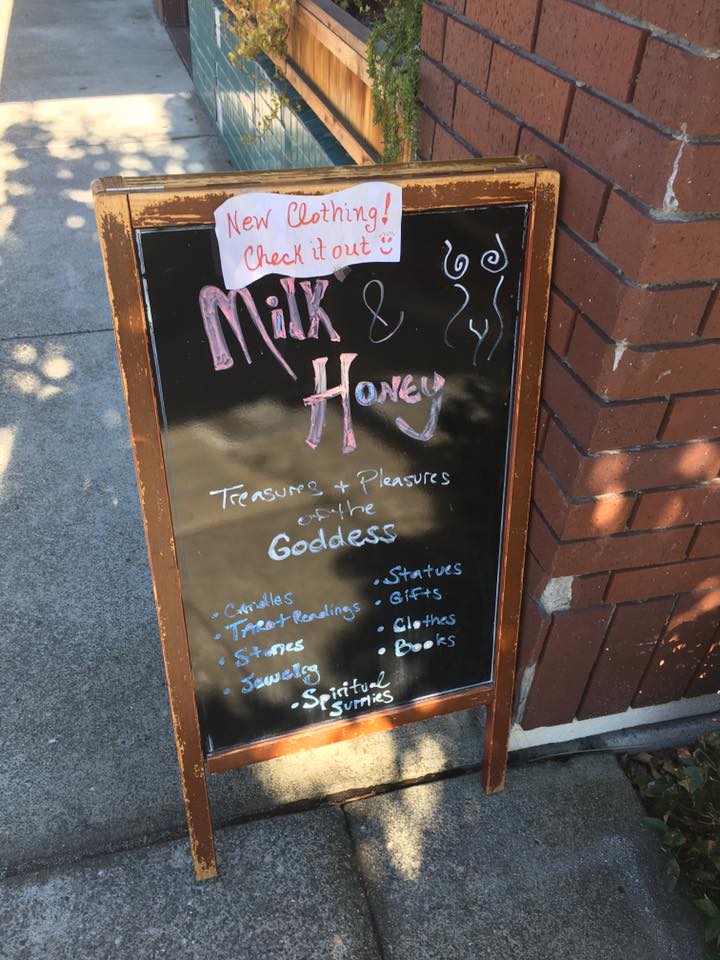 New Clothing!
Check it out
Milk &
Honey
Treasures + Pleasures
of the
Goddess
• Candles
• Tarot Readings
• Stones
• Jewelry
• Statues
• Gifts
• Clothes
• Books
• Spiritual
Supplies